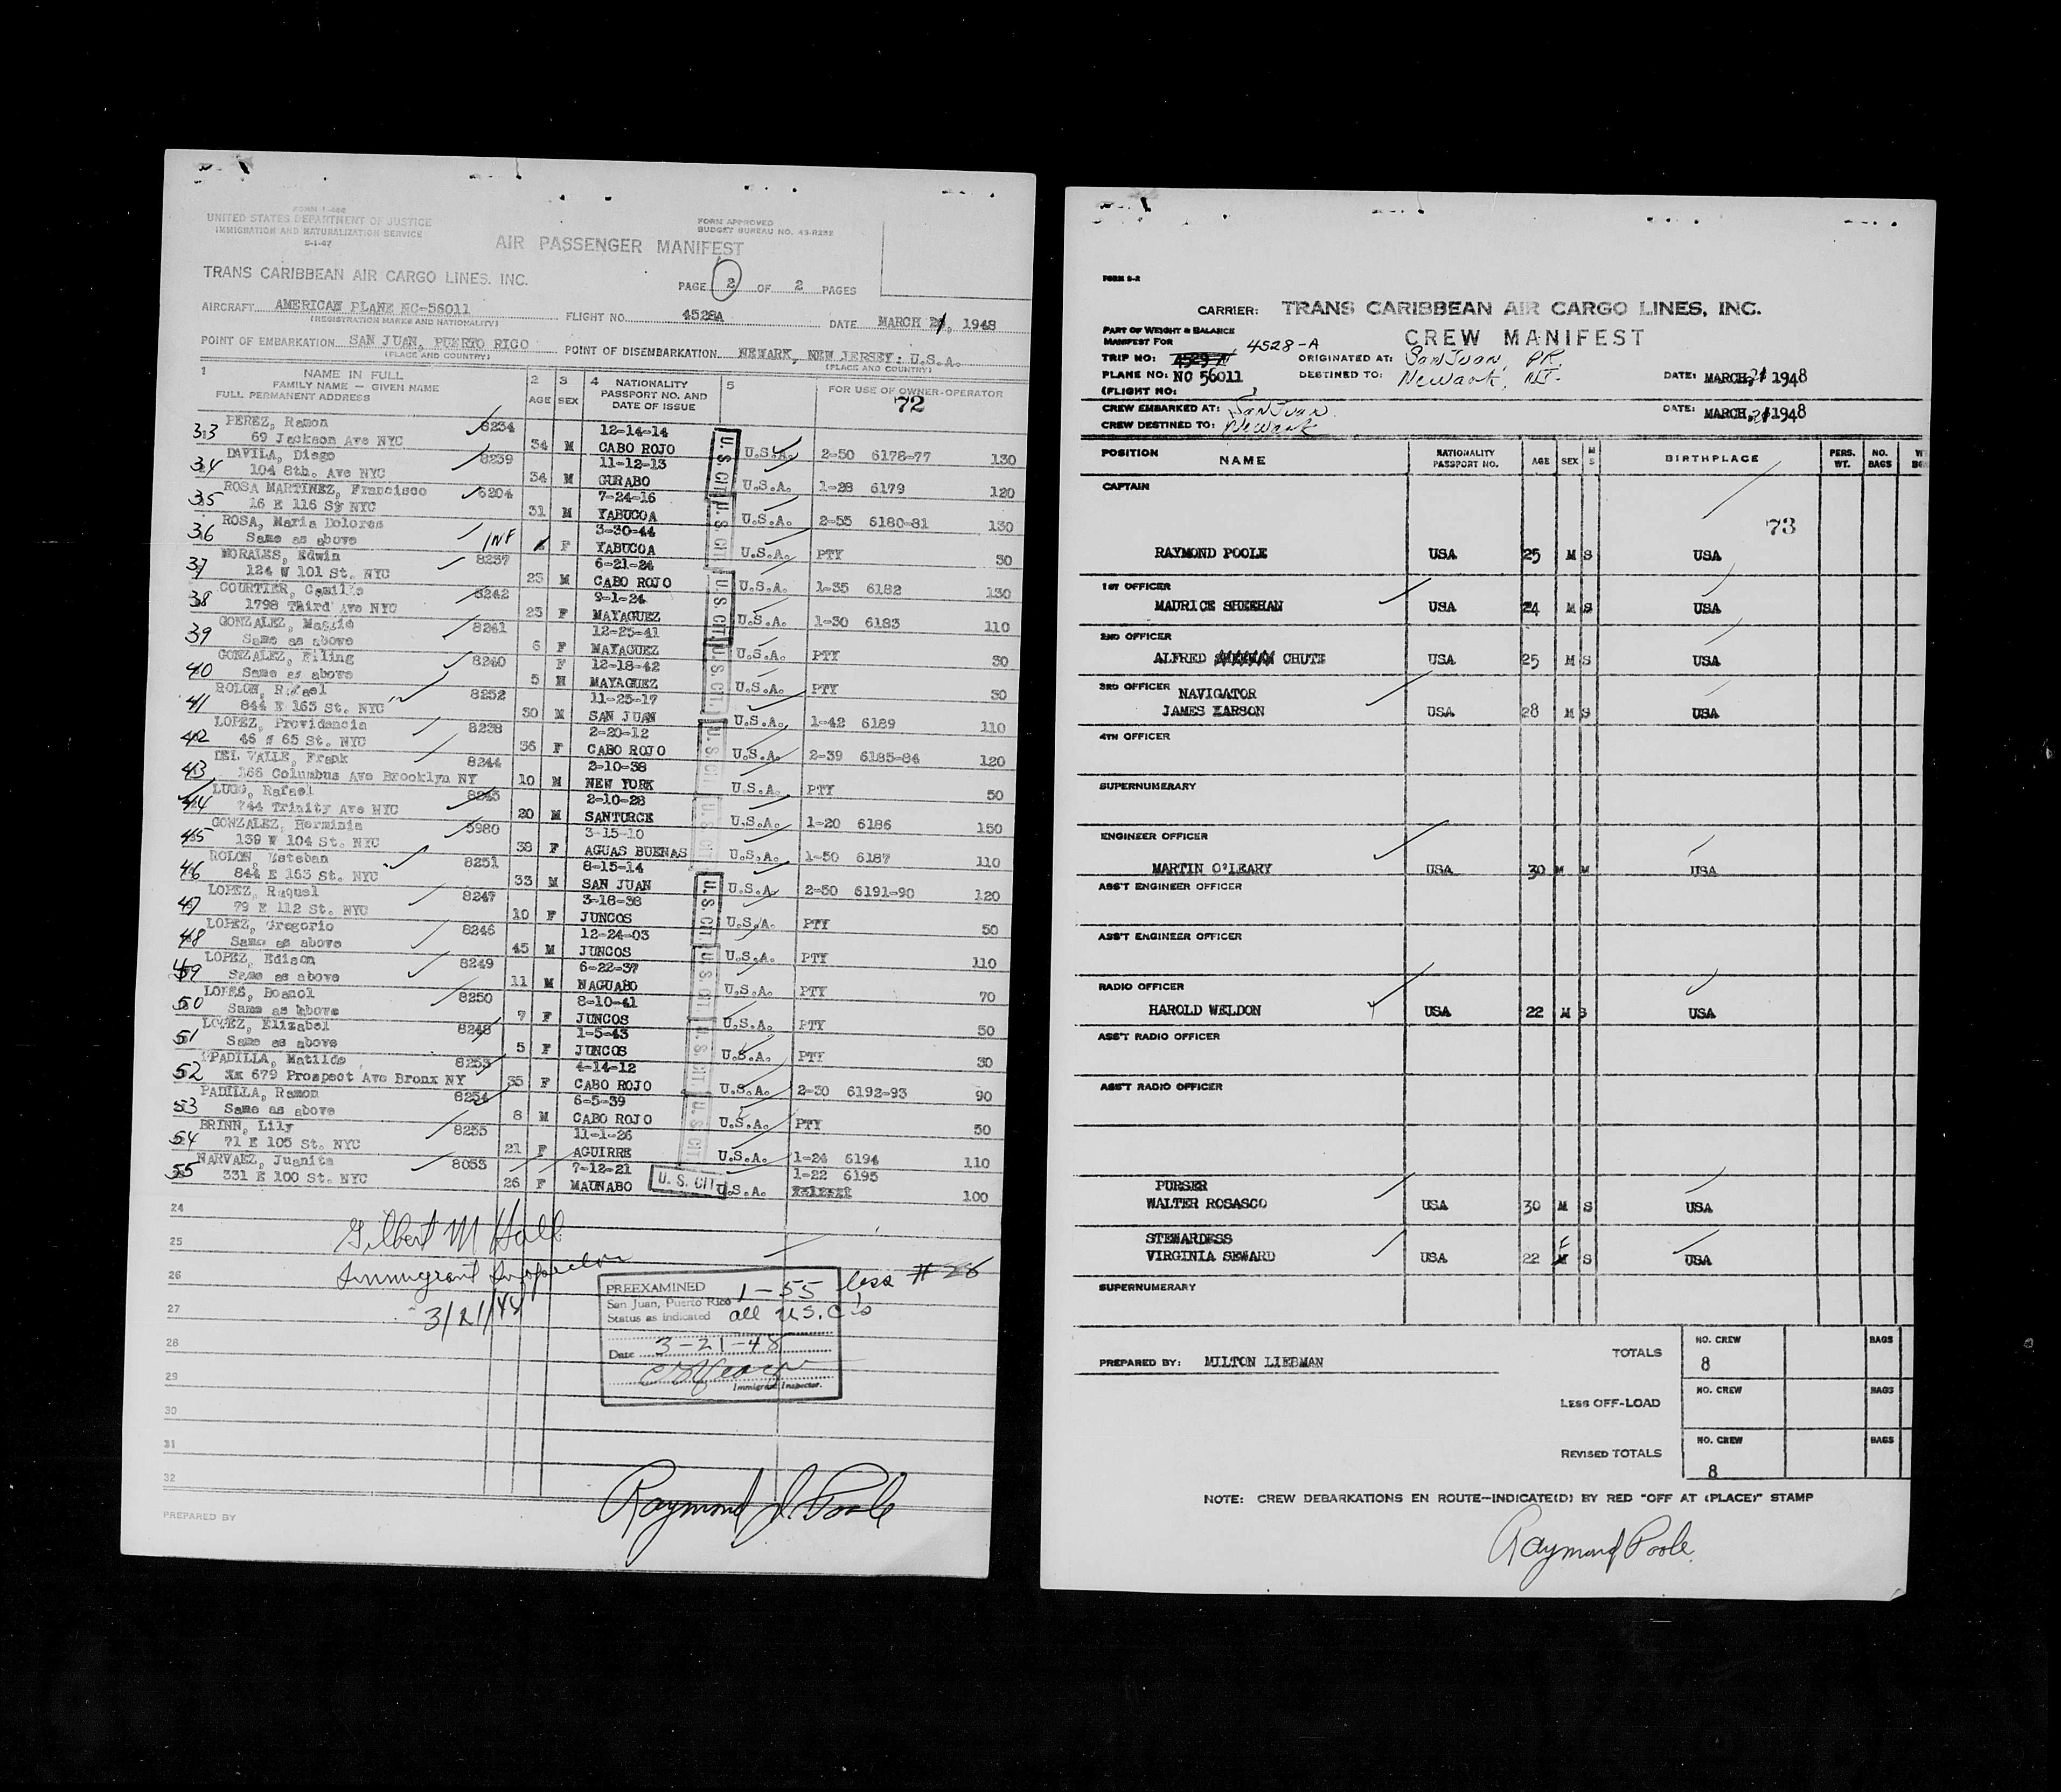 FORM I-466
UNITED STATES DEPARTMENT OF JUSTICE
IMMIGRATION AND NATURALIZATION SERVICE
5-1-47
FORM APPROVED
BUDGET BUREAU NO. 43-R232
AIR PASSENGER MANIFEST
TRANS CARIBBEAN AIR CARGO LINES, INC.
PAGE 2 OF 2 PAGES
AIRCRAFT AMERICAN PLANE NC-56011 FLIGHT NO. 4528A DATE MARCH 21, 1948
(REGISTRATION MARKS AND NATIONALITY)
POINT OF EMBARKATION SAN JUAN, PUERTO RICO POINT OF DISEMBARKATION NEWARK, NEW JERSEY: U.S.A.
(PLACE AND COUNTRY) (PLACE AND COUNTRY)
1 NAME IN FULL 2 3 4 NATIONALITY 5 FOR USE OF OWNER-OPERATOR
FAMILY NAME — GIVEN NAME AGE SEX PASSPORT NO. AND 72
FULL PERMANENT ADDRESS DATE OF ISSUE
PEREZ, Ramon 8234 12-14-14
33 69 Jackson Ave NYC 34 M CABO ROJO U.S.A. 2-50 6178-77 130
DAVILA, Diego 8239 11-12-13
34 104 8th. Ave NYC 34 M GURABO U.S.A. 1-28 6179 120
ROSA MARTINEZ, Francisco 6204 7-24-16
35 16 E 116 St NYC 31 M YABUCOA U.S.A. 2-55 6180-81 130
ROSA, Maria Dolores 3-30-44
36 Same as above INF F YABUCOA U.S.A. PTY 30
MORALES, Edwin 8237 6-21-24
37 124 W 101 St. NYC 23 M CABO ROJO U.S.A. 1-35 6182 130
COURTIER, Camille 8242 9-1-24
38 1798 Third Ave NYC 23 F MAYAGUEZ U.S.A. 1-30 6183 110
GONZALEZ, Maggie 8241 12-25-41
39 Same as above 6 F MAYAGUEZ U.S.A. PTY 30
GONZALEZ, Filing 8240 F 12-18-42
40 Same as above 5 M MAYAGUEZ U.S.A. PTY 30
ROLON, Rafael 8252 11-25-17
41 844 E 163 St. NYC 30 M SAN JUAN U.S.A. 1-42 6189 110
LOPEZ, Providancia 8238 2-20-12
42 46 W 65 St. NYC 36 F CABO ROJO U.S.A. 2-39 6185-84 120
DEL VALLE, Frank 8244 2-10-38
43 166 Columbus Ave Brooklyn NY 10 M NEW YORK U.S.A. PTY 50
LUGO, Rafael 8245 2-10-28
44 744 Trinity Ave NYC 20 M SANTURCE U.S.A. 1-20 6186 150
GONZALEZ, Herminia 5980 3-15-10
45 139 W 104 St. NYC 38 F AGUAS BUENAS U.S.A. 1-50 6187 110
ROLON, Esteban 8251 8-15-14
46 844 E 163 St. NYC 33 M SAN JUAN U.S.A. 2-50 6191-90 120
LOPEZ, Raquel 8247 3-18-38
47 79 E 112 St. NYC 10 F JUNCOS U.S.A. PTY 50
LOPEZ, Gregorio 8246 12-24-03
48 Same as above 45 M JUNCOS U.S.A. PTY 110
LOPEZ, Edison 8249 6-22-37
49 Same as above 11 M NAGUABO U.S.A. PTY 70
LOPES, Bosnol 8250 8-10-41
50 Same as above 7 F JUNCOS U.S.A. PTY 50
LOPEZ, Elizabel 8248 1-5-43
51 Same as above 5 F JUNCOS U.S.A. PTY 30
PADILLA, Matilde 8253 4-14-12
52 679 Prospect Ave Bronx NY 35 F CABO ROJO U.S.A. 2-30 6192-93 90
PADILLA, Ramon 8254 6-5-39
53 Same as above 8 M CABO ROJO U.S.A. PTY 50
BRINN, Lily 8255 11-1-26
54 71 E 105 St. NYC 21 F AGUIRRE U.S.A. 1-24 6194 110
NARVAEZ, Juanita 8053 7-12-21 1-22 6195
55 331 E 100 St. NYC 26 F MAUNABO U. S. CIT U.S.A. 100
24
25
26
27
28
29
30
31
32
Gilbert M Hall
Immigrant Inspector
3/21/48
PREEXAMINED 1-55 less # 26
San Juan, Puerto Rico
Status as indicated all U.S.C's
Date 3-21-48
Immigrant Inspector.
Raymond J. Poole
PREPARED BY
FORM S-2
CARRIER: TRANS CARIBBEAN AIR CARGO LINES, INC.
PART OF WEIGHT & BALANCE
MANIFEST FOR
CREW MANIFEST
TRIP NO: 4528-A ORIGINATED AT: San Juan, P.R.
PLANE NO: NC 56011 DESTINED TO: Newark, N.J. DATE: MARCH 21 1948
(FLIGHT NO: )
CREW EMBARKED AT: San Juan DATE: MARCH 21 1948
CREW DESTINED TO: Newark
POSITION NAME NATIONALITY PASSPORT NO. AGE SEX M S BIRTHPLACE PERS. WT. NO. BAGS
CAPTAIN
73
RAYMOND POOLE USA 25 M S USA
1ST OFFICER
MAURICE SHEEHAN USA 24 M S USA
2ND OFFICER
ALFRED CHUTE USA 25 M S USA
3RD OFFICER NAVIGATOR
JAMES KARSON USA 28 M S USA
4TH OFFICER
SUPERNUMERARY
ENGINEER OFFICER
MARTIN O'LEARY USA 30 M M USA
ASS'T ENGINEER OFFICER
ASS'T ENGINEER OFFICER
RADIO OFFICER
HAROLD WELDON USA 22 M S USA
ASS'T RADIO OFFICER
ASS'T RADIO OFFICER
PURSER
WALTER ROSASCO USA 30 M S USA
STEWARDESS
VIRGINIA SEWARD USA 22 F S USA
SUPERNUMERARY
PREPARED BY: MILTON LIEBMAN
TOTALS NO. CREW 8 BAGS
LESS OFF-LOAD NO. CREW BAGS
REVISED TOTALS NO. CREW 8 BAGS
NOTE: CREW DEBARKATIONS EN ROUTE—INDICATE(D) BY RED "OFF AT (PLACE)" STAMP
Raymond Poole